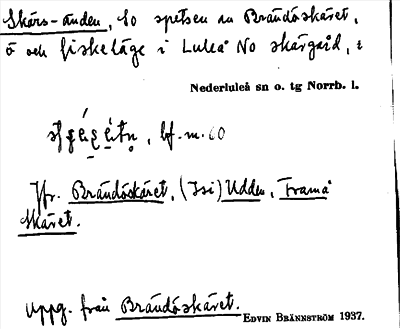 Skärs-änden, So spetsen av Brändöskäret,
ö och fiskeläge i Luleå No skärgård, i
Nederluleå sn o. tg Norrb. l.
bf. m. 60
Jfr. Brändöskäret, (Isi) Udden, Framå
skäret.
Uppg. från Brändöskäret.
EDVIN BRÄNNSTRÖM 1937.